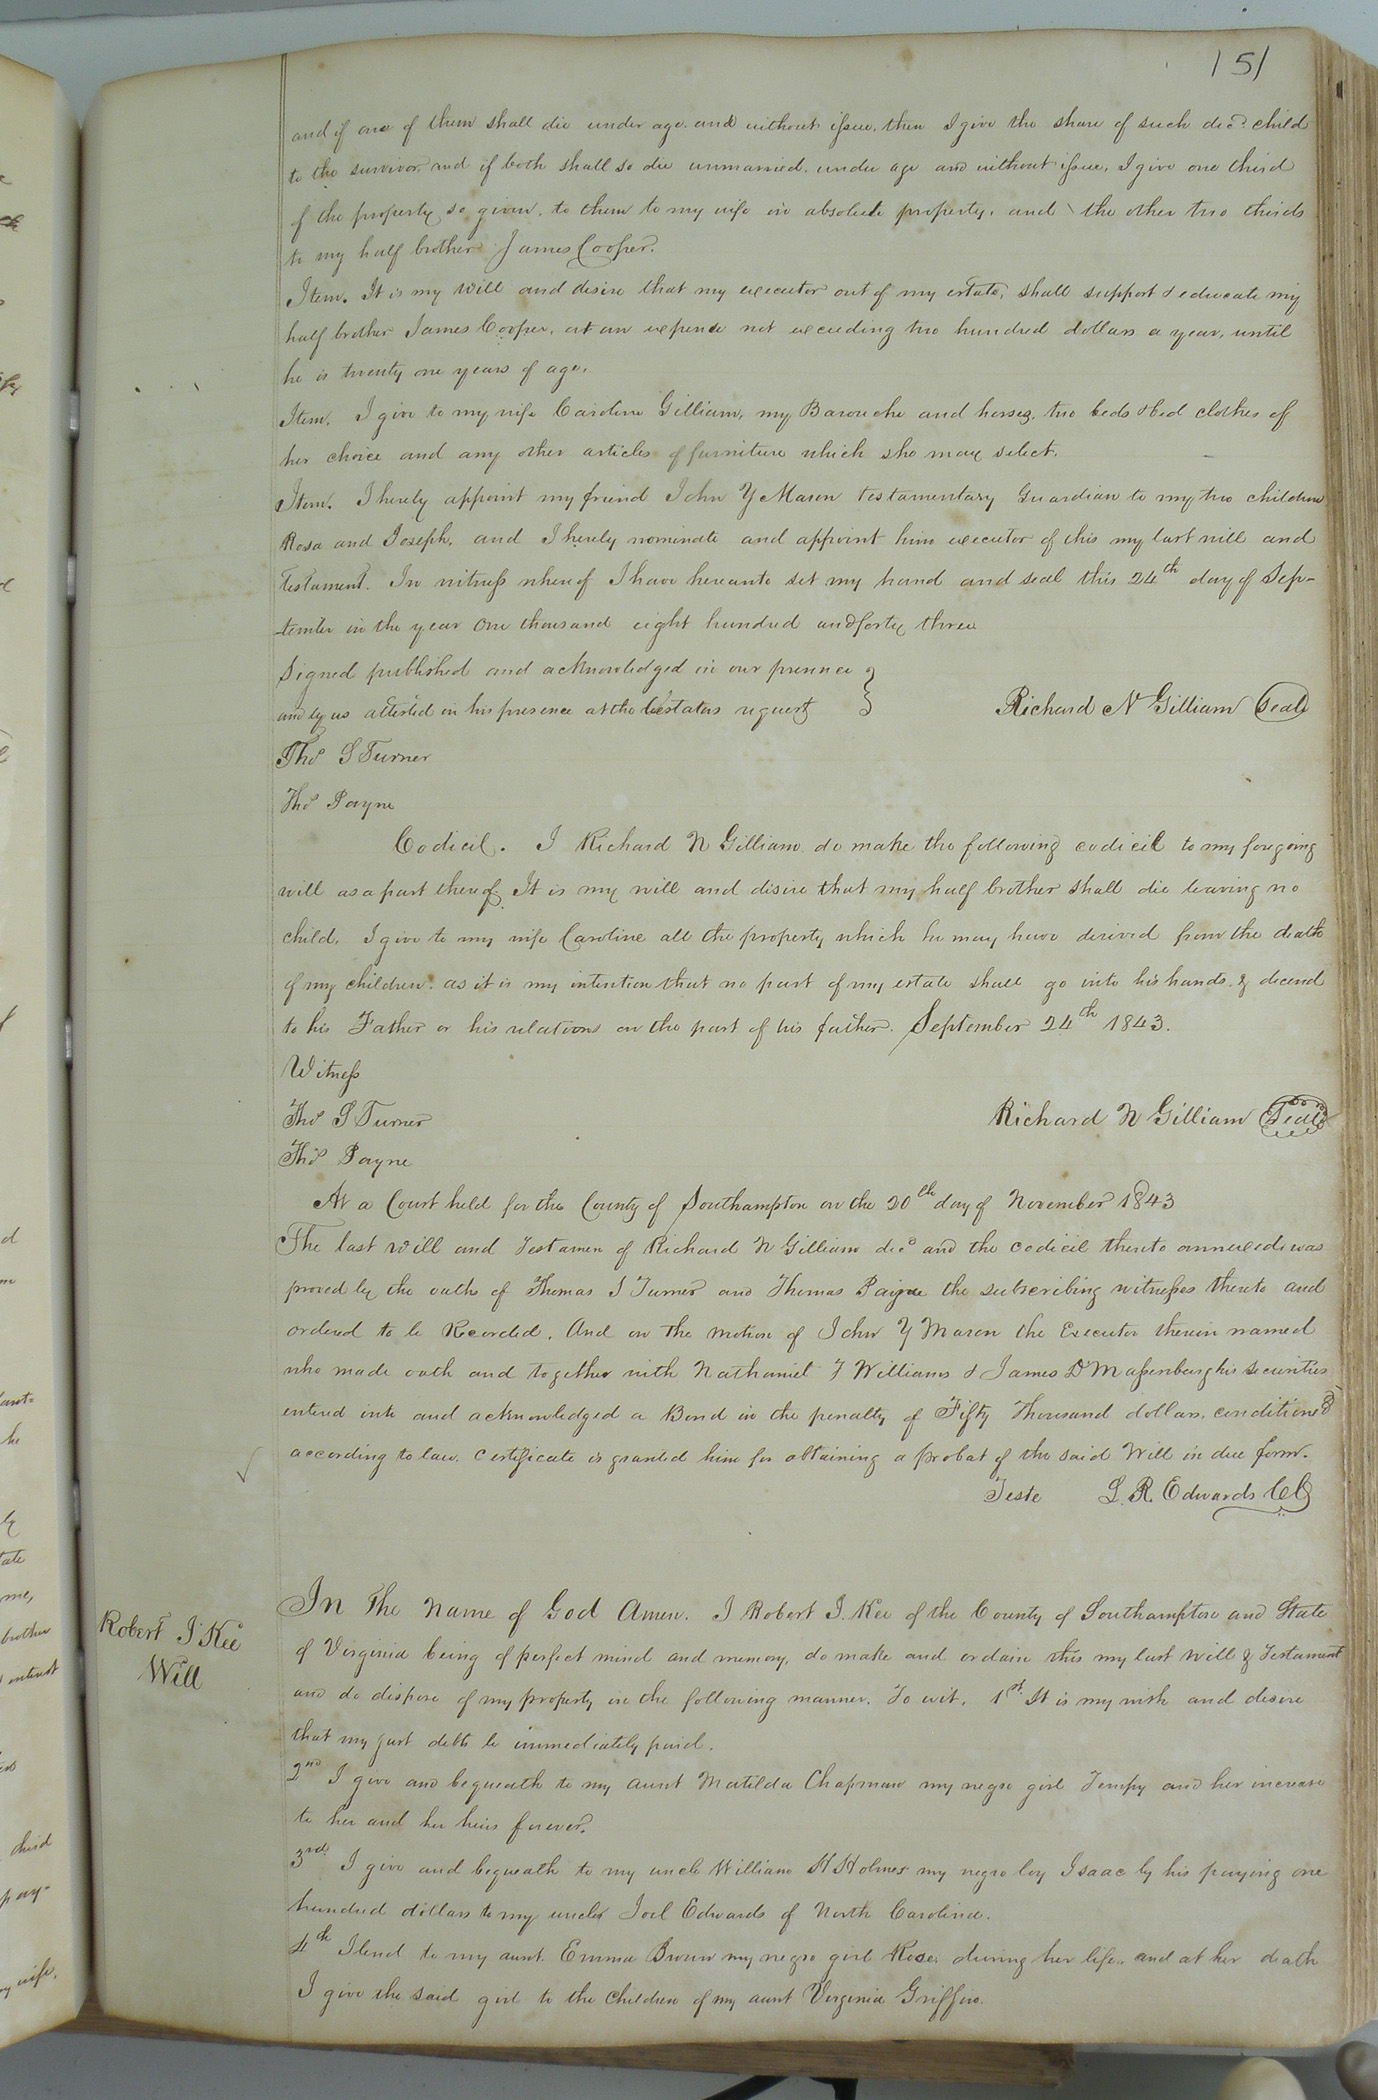 151
and if one of them shall die under age and without issue, then I give the share of such decd. child
to the survivor, and if both shall so die unmarried, under age and without issue, I give one third
of the property so given, to them to my wife in absolute property, and the other two thirds
to my half brother James Cooper.
Item. It is my will and desire that my executor out of my estate, shall support & educate my
half brother James Cooper, at an expense not exceeding two hundred dollars a year, until
he is twenty one years of age.
Item. I give to my wife Caroline Gilliam, my Barouche and horses, two beds & bed clothes of
her choice and any other articles of furniture which she may select.
Item. I hereby appoint my friend John Y Mason testamentary Guardian to my two children
Rosa and Joseph, and I hereby nominate and appoint him executor of this my last will and
testament. In witness whereof I have hereunto set my hand and seal this 24th day of Sep-
tember in the year One thousand eight hundred and forty three
Signed published and acknowledged in our presence }
and by us attested in his presence at the testators request } Richard N Gilliam Seal
Thos S Turner
Thos Payne
Codicil. I Richard N Gilliam do make the following codicil to my foregoing
will as a part thereof. It is my will and disire that my half brother shall die leaving no
child, I give to my wife Caroline all the property which he may have derived from the death
of my children. as it is my intention that no part of my estate shall go into his hands & decend
to his Father or his relations on the part of his father. September 24th 1843.
Witness
Thos S Turner Richard N Gilliam Seal
Thos Payne
At a Court held for the County of Southampton on the 20th day of November 1843
The last will and Testamen of Richard N Gilliam decd and the codicil thereto annexed was
proved by the oaths of Thomas S Turner and Thomas Payne the subscribing witnesses thereto and
ordered to be Recorded. And on the motion of John Y Mason the Executor therein named
who made oath and together with Nathaniel F Williams & James D Massenburg his securities
entered into and acknowledged a Bond in the penalty of Fifty Thousand dollars, conditioned
according to law. Certificate is granted him for obtaining a probat of the said Will in due form.
Teste L. R. Edwards CC
Robert J Kee
Will
In The Name of God Amen. I Robert J. Kee of the County of Southampton and State
of Virginia being of perfect mind and memory, do make and ordain this my last will & Testament
and do dispose of my property in the following manner. To wit, 1st It is my wish and desire
that my just debts be immediately paid.
2nd I give and bequeath to my aunt Matilda Chapman my negro girl Tempy and her increase
to her and her heirs forever.
3rd I give and bequeath to my uncle William H Holmes my negro boy Isaac by his paying one
hundred dollars to my uncle Joel Edwards of North Carolina.
4th I lend to my aunt Emma Brown my negro girl Rose, during her life, and at her death
I give the said girl to the children of my aunt Virginia Griffin.